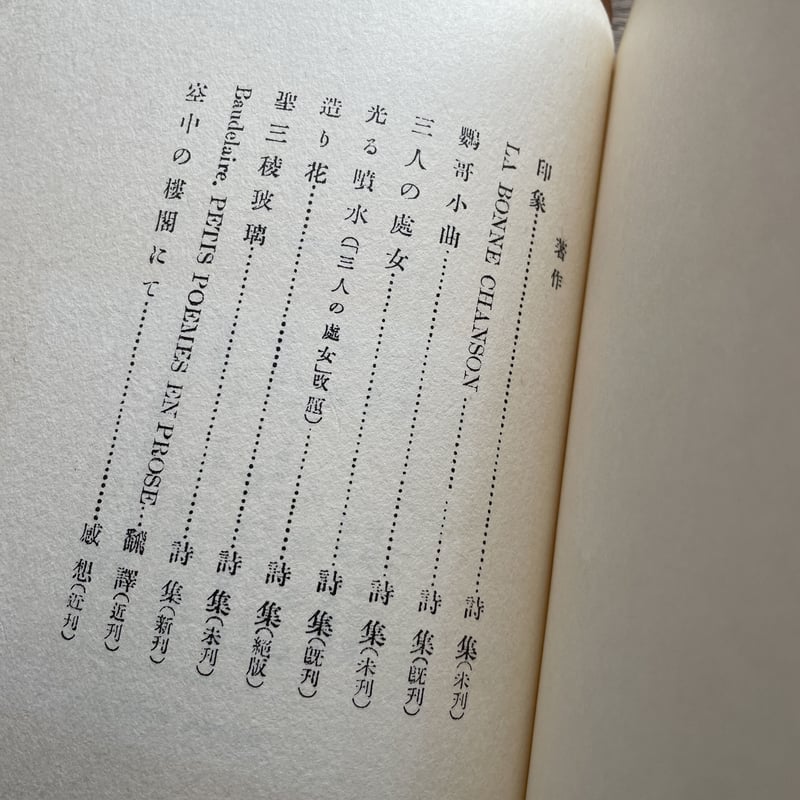 著作
印象……詩集(未刊)
LA BONNE CHANSON……詩集(既刊)
鸚哥小曲……詩集(未刊)
三人の處女……詩集(既刊)
光る噴水(「三人の處女」改題)……詩集(絕版)
造り花……詩集(未刊)
聖三稜玻璃……詩集(新刊)
Baudelaire. PETIS POEMES EN PROSE……飜譯(近刊)
空中の樓閣にて……感想(近刊)